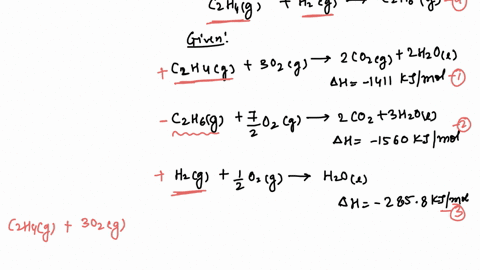 C2H4(g) + H2(g) → C2H6(g) -4
Given:
+ C2H4(g) + 3O2(g) → 2CO2(g) + 2H2O(l)
ΔH = -1411 KJ/mol -1
- C2H6(g) + 7/2 O2(g) → 2CO2 + 3H2O(l) -2
ΔH = -1560 KJ/mol
+ H2(g) + 1/2 O2(g) → H2O(l)
ΔH = -285.8 KJ/mol -3
C2H4(g) + 3O2(g)